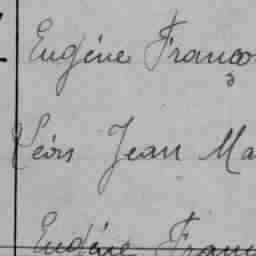 Eugène Franço
Léon Jean Ma
Eugène Fran